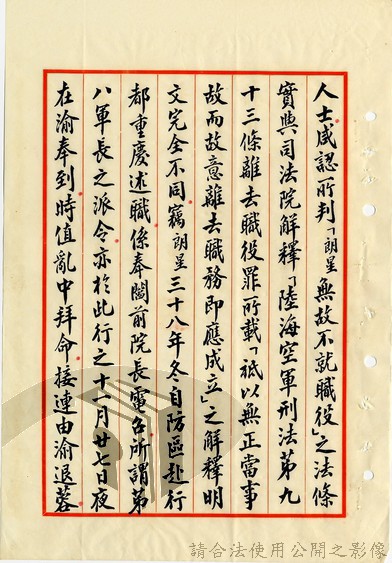 人士咸認所判「朗星無故不就職役」之法條
實與司法院解釋「陸海空軍刑法第九
十三條離去職役罪所載「祇以無正當事
故而故意離去職務即應成立」之解釋明
文完全不同竊朗星三十八年冬自防區赴行
都重慶述職係奉閻前院長電召所謂第
八軍長之派令亦於此行之十一月廿七日夜
在渝奉到時值亂中拜命接連由渝退蓉
請合法使用公開之影像